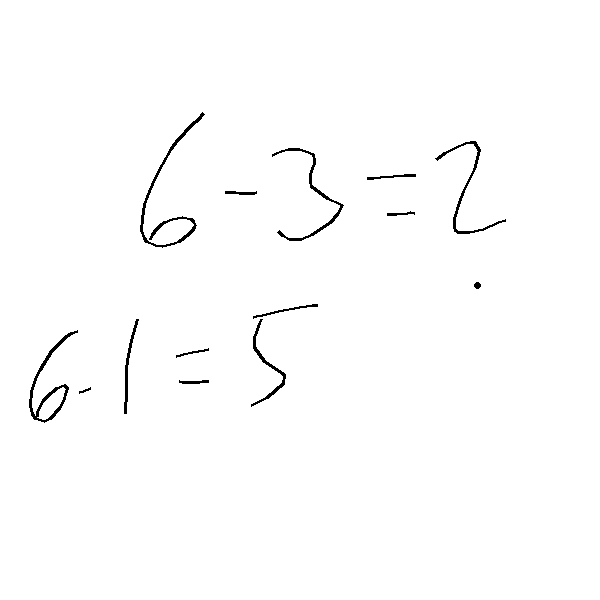 6-3=2
6-1=5